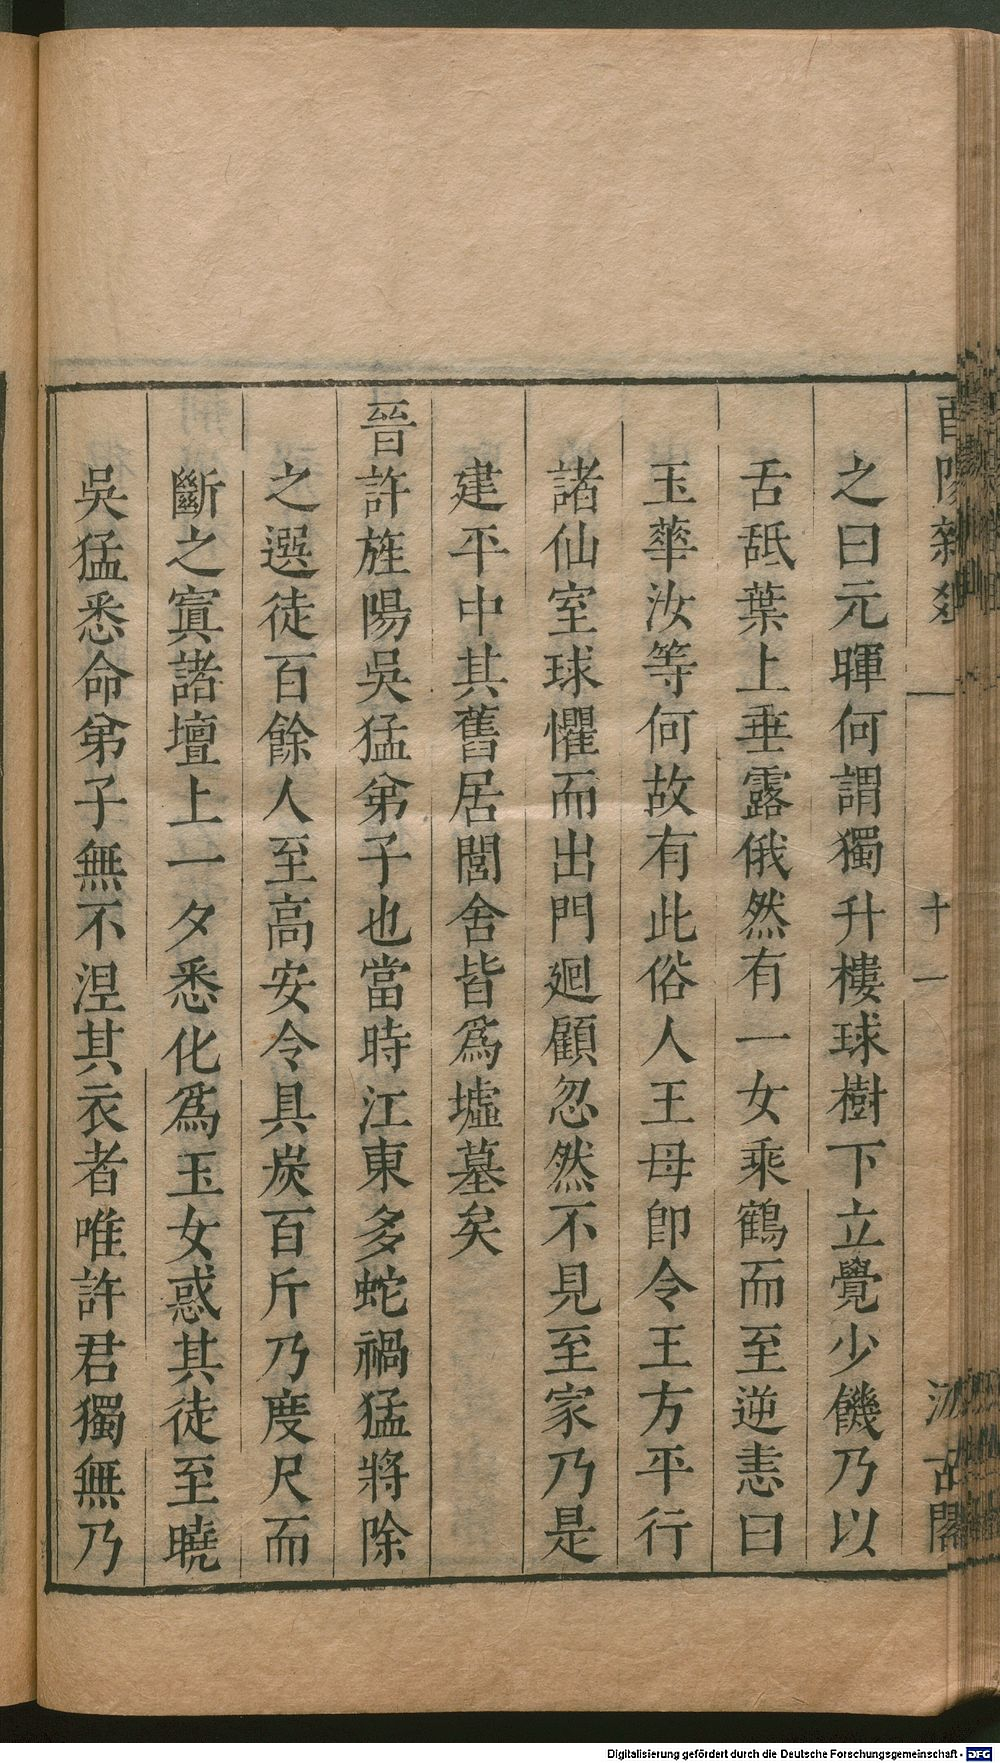 酉陽雜俎 一 十一 汲古閣
之曰元暉何謂獨升樓球樹下立覺少饑乃以
舌舐葉上垂露俄然有一女乘鶴而至逆恚曰
玉華汝等何故有此俗人王母卽令王方平行
諸仙室球懼而出門廻顧忽然不見至家乃是
建平中其舊居閭舍皆爲墟墓矣
晉許旌陽吳猛弟子也當時江東多蛇禍猛將除
之選徒百餘人至高安令具炭百斤乃度尺而
斷之寘諸壇上一夕悉化爲玉女惑其徒至曉
吳猛悉命弟子無不涅其衣者唯許君獨無乃
Digitalisierung gefördert durch die Deutsche Forschungsgemeinschaft - DFG